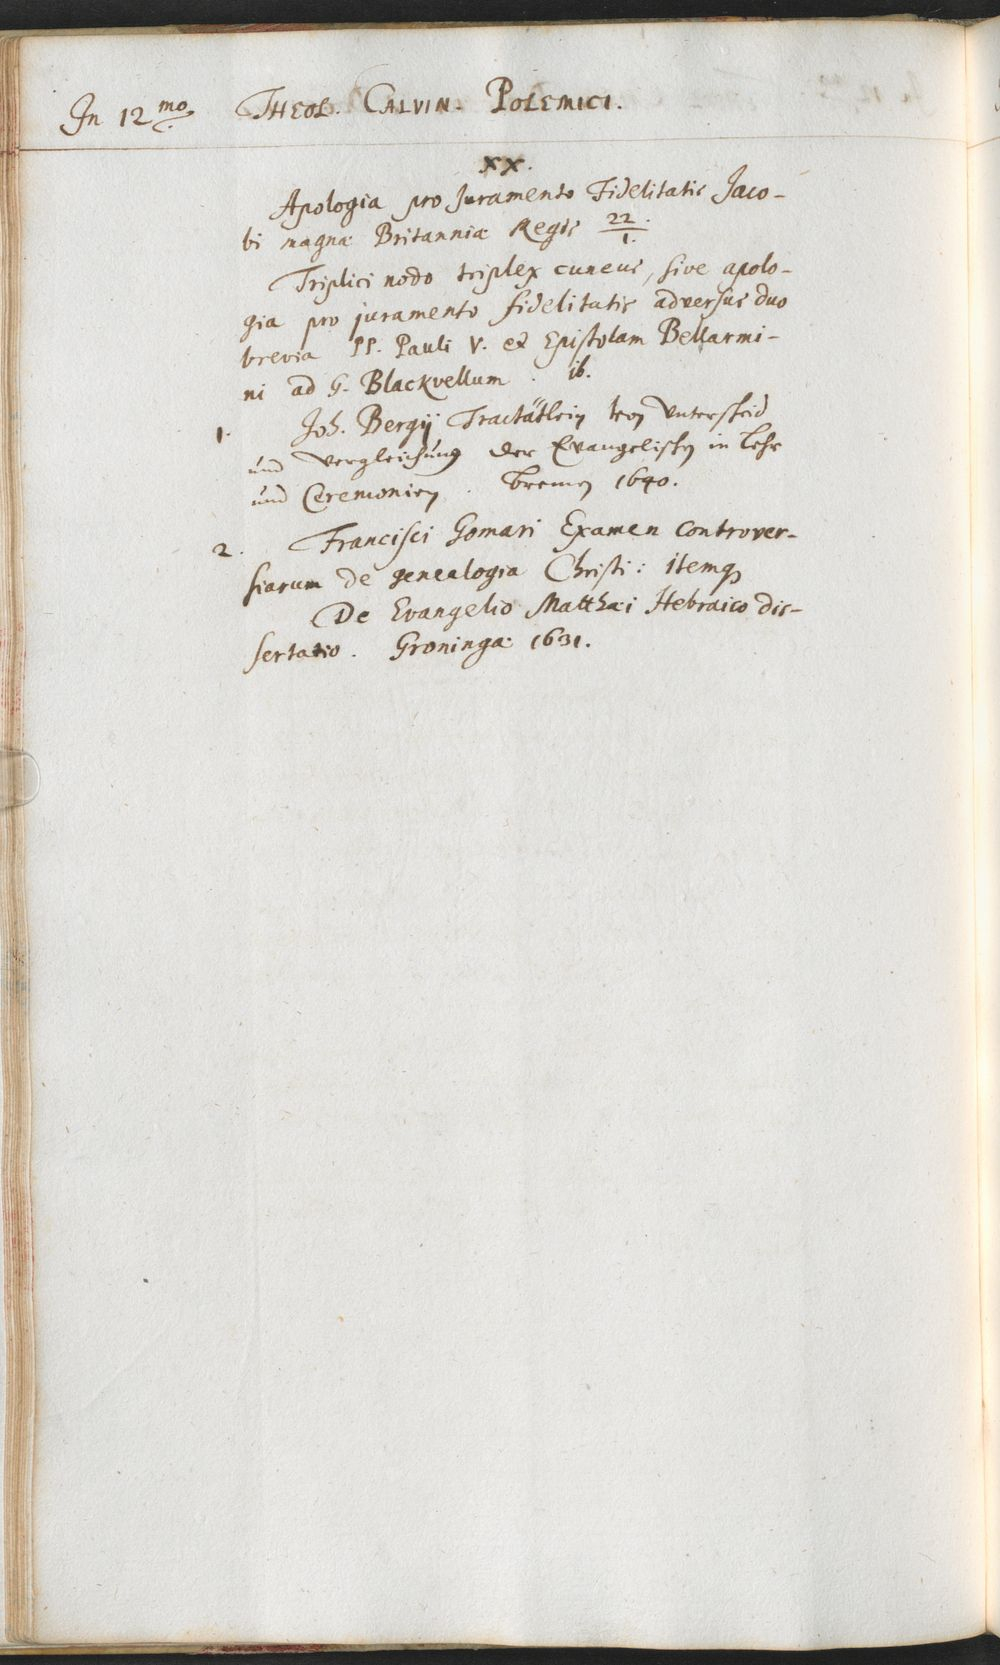 In 12mo. THEOL. CALVIN. POLEMICI.
XX.
Apologia pro Juramento Fidelitatis Jaco-
bi magnæ Britanniæ Regis 22/1.
Triplici nodo triplex cuneus, sive apolo-
gia pro juramento fidelitatis adversus duo
brevia PP. Pauli V. et Epistolam Bellarmi-
ni ad G. Blackvellum. ib.
1. Joh. Bergij Tractätlein von Unterscheid
und Vergleichung der Evangelischen in Lehr
und Ceremonien. Bremen 1640.
2. Francisci Gomari Examen Controver-
siarum de genealogia Christi: itemq
De Evangelio Matthæi Hebraico dis-
sertatio. Groningæ 1631.